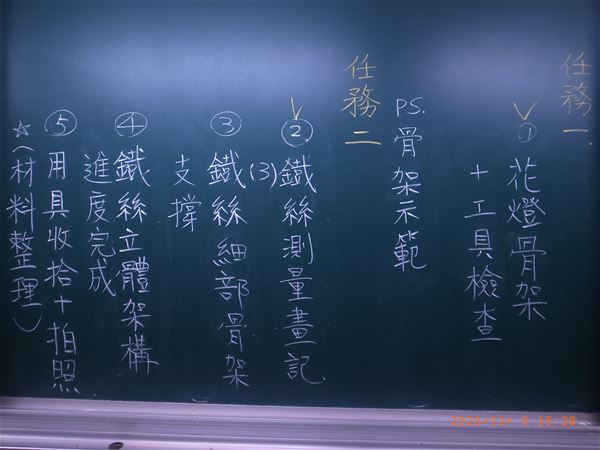 任務一
①花燈骨架
+工具檢查
PS.骨架示範
任務二
②鐵絲測量畫記
(3)
③鐵絲細部骨架
支撐
④鐵絲立體架構
進度完成
⑤用具收拾+拍照
☆(材料整理)